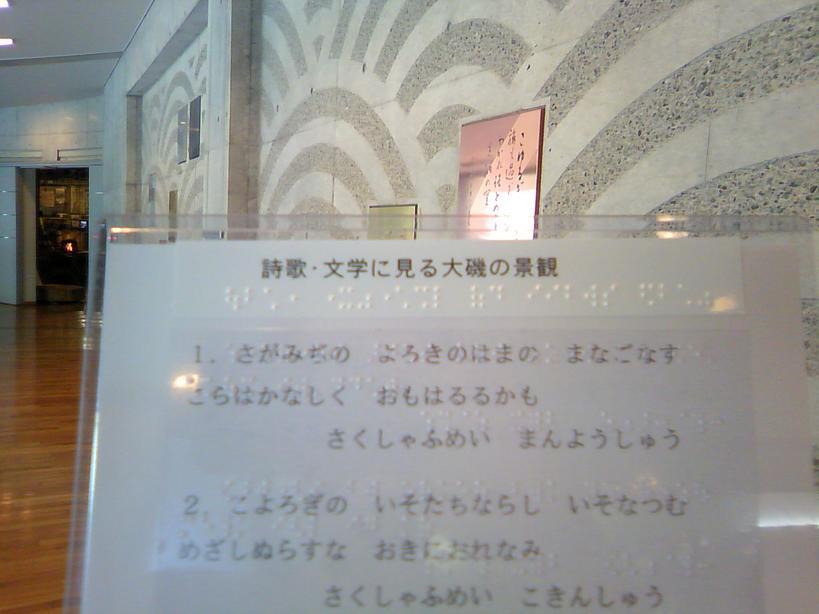 詩歌・文学に見る大磯の景観
1．さがみぢの　よろきのはまの　まなごなす
こらはかなしく　おもはるるかも
さくしゃふめい　まんようしゅう
2．こよろぎの　いそたちならし　いそなつむ
めざしぬらすな　おきにおれなみ
さくしゃふめい　こきんしゅう